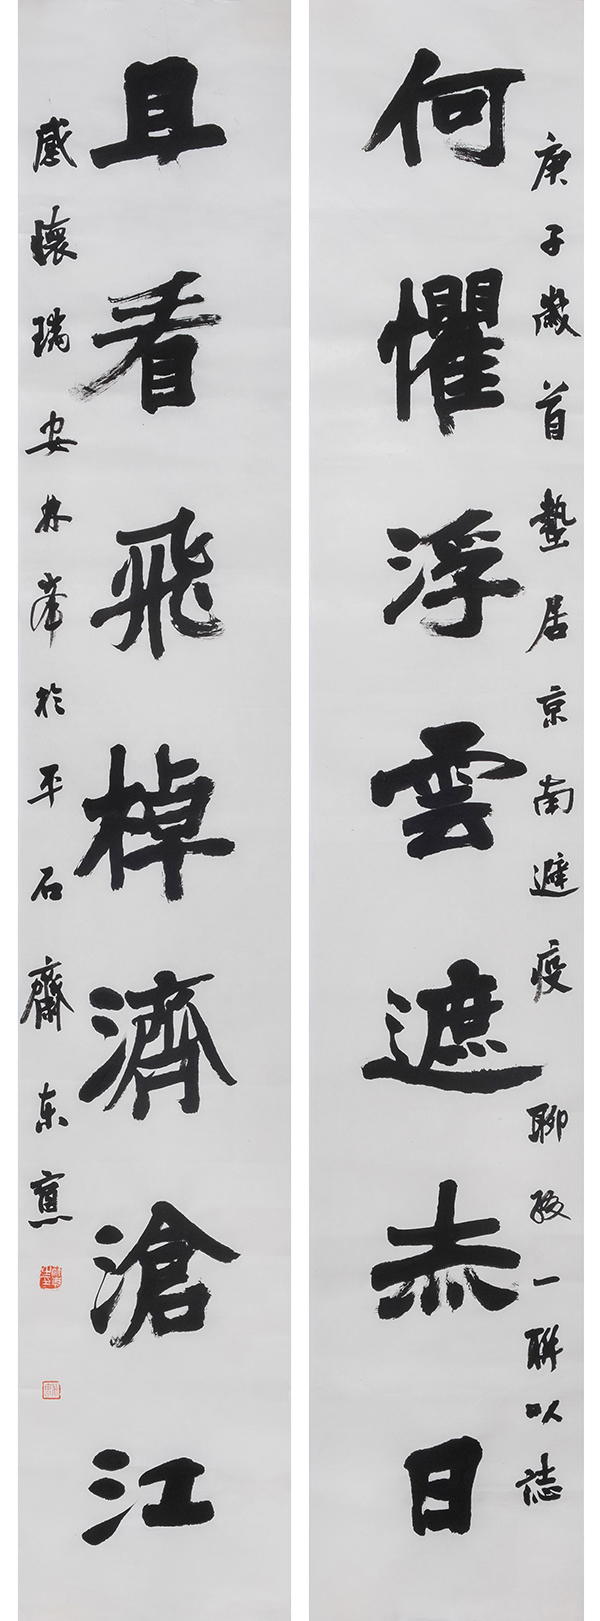 庚子歲首蟄居京南避疫聊撰一聯以誌
何懼浮雲遮赤日
且看飛棹濟滄江
感懷瑞安林峯於平石齋東窗